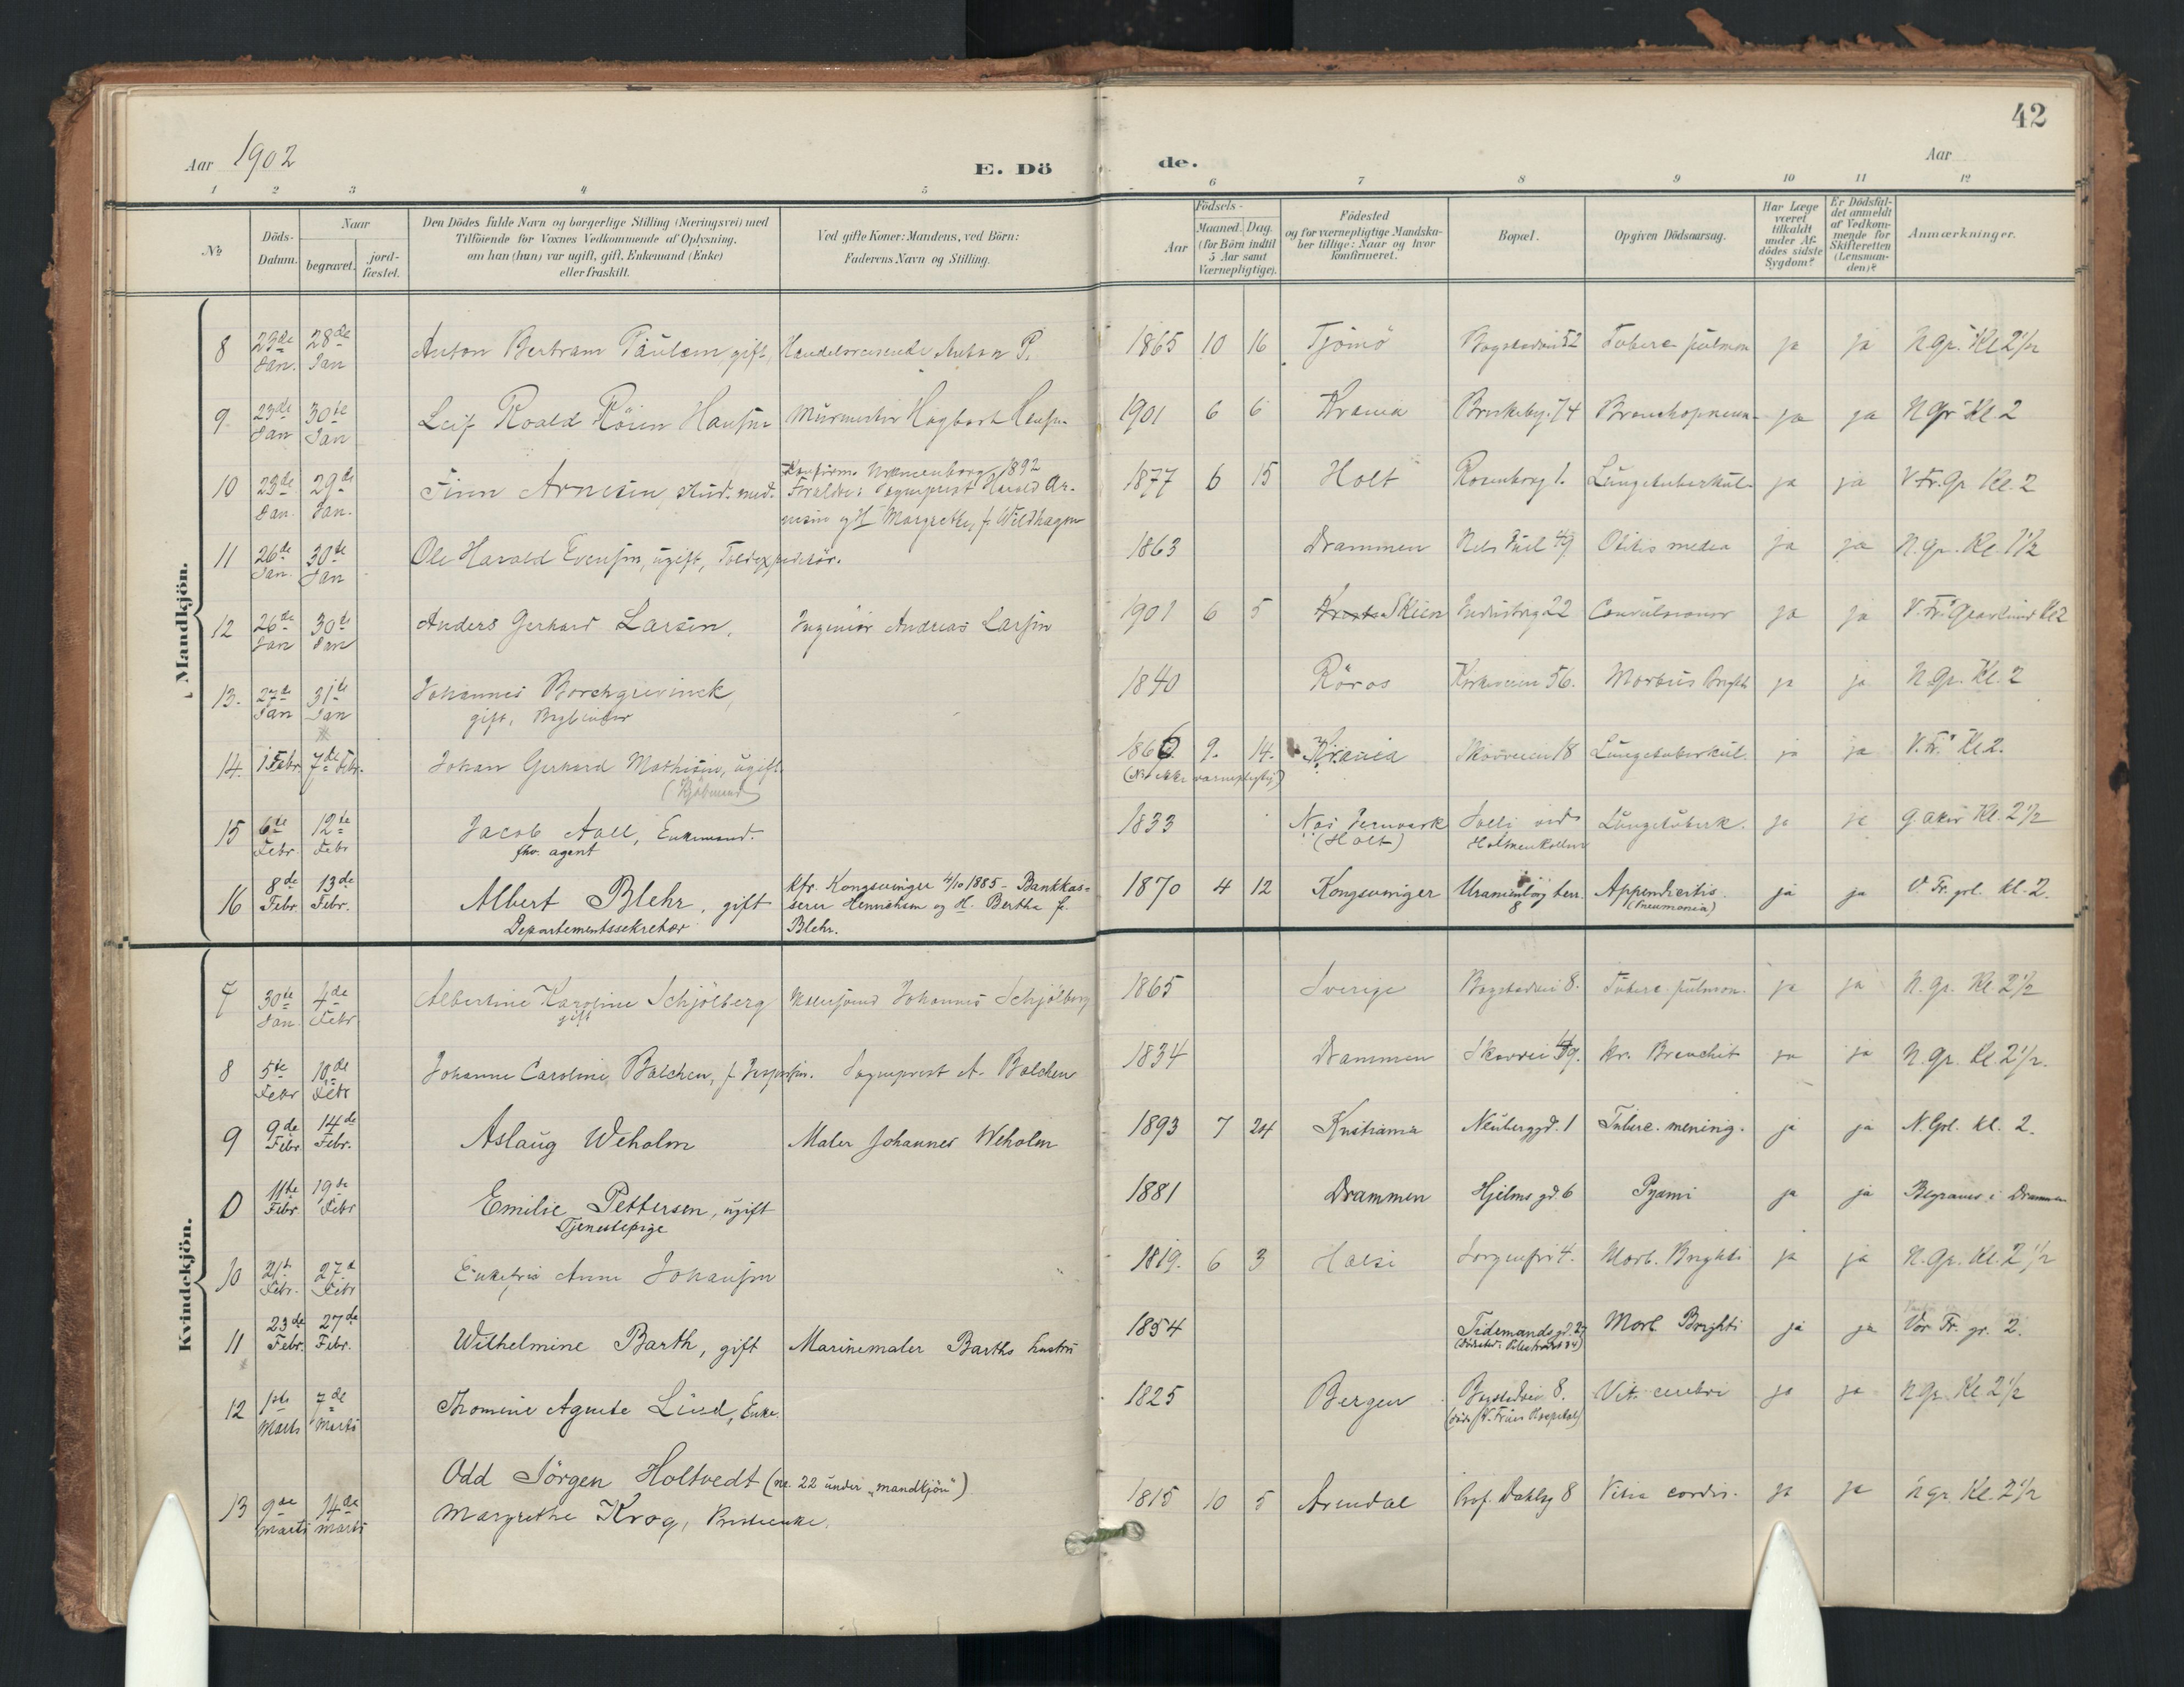 42
Aar 1902
E. Dö de.
Aar
1 2 3 4 5 6 7 8 9 10 11 12
№
Döds-Datum.
Naar
begravet.
jord-fæstet.
Den Dödes fulde Navn og borgerlige Stilling (Næringsvei) med
Tilföiende for Voxnes Vedkommende af Oplysning,
om han (hun) var ugift, gift, Enkemand (Enke)
eller fraskilt.
Ved gifte Koner: Mandens, ved Börn:
Faderens Navn og Stilling.
Födsels-
Aar
Maaned. Dag.
(for Börn indtil
5 Aar samt
Værnepligtige).
Födested
og for værnepligtige Mandska-
ber tillige: Naar og hvor
konfirmeret.
Bopæl.
Opgiven Dödsaarsag.
Har Læge
været
tilkaldt
under Af-
dödes sidste
Sygdom?
Er Dödsfal-
det anmeldt
af Vedkom-
mende for
Skifteretten
(Lensman-
den)?
Anmærkninger.
Mandkjön.
8 23de Jan. 28de Jan Anton Bertram Paulsen gift, Handelsreisende Anton P. 1865 10 16 Tjömö Bogstadvei 52 Tuberc. pulmon ja ja N. gr. Kl 2 1/2
9 23de Jan 30te Jan Leif Roald Röien Hansen Murmester Hagbart Hansen 1901 6 6 Krania Briskebyg. 74 Bronchopneum. ja ja N gr Kl. 2
10 23de Jan. 29de Jan. Finn Arnesen stud. med. Konfirm. Uranienborg 1892
Forældre: Sogneprest Harald Ar-
nesen og H. Margrethe, f. Wildhagen 1877 6 15 Holt Rosenborg 1. Lungetuberkul. ja ja V. Fr. Gr Kl. 2
11 26de Jan. 30te Jan Ole Harald Evensen, ugift, Toldexpeditör. 1863 Drammen Nels Juel 49 Otitis media ja ja N. gr. Kl. 1 1/2
12 26de Jan 30te Jan Anders Gerhard Larsen. Ingeniör Andreas Larsen 1901 6 5 Skien 22 Convulsioner ja ja V. Fr. Gravlund Kl 2
13. 27de Jan 31te Jan Johannes Borchgrevinck,
gift, 1840 Röros Kirkeveien 56. Morbus Brighti ja ja N. gr. Kl. 2
14. 1 Febr. 7de Febr. Johan Gerhard Mathisen, ugift
(Kjöbmand) 1866 9. 14. Krania 18 Lungetuberkul. ja ja V. Fr. Kl 2.
(NB ikke værnepligtig)
15 6te Febr. 12te Febr Jacob Aall, Enkemand.
fhv. agent 1833 Næs Jernværk
(Holt) Solli ved
Holmenkollen Lungetuberk. ja ja V. aker Kl. 2 1/2
16 8de Febr. 13de Febr. Albert Blehr, gift
Departementssekretær kfr. Kongsvinger 4/10 1885 - Bankkas-
serer Henrichsen og H. Bertha f.
Blehr. 1870 4 12 Kongsvinger Uranienborg terr.
8 Appendicitis
(Pneumonia) ja ja V Fr. grl. kl. 2.
Kvindekjön.
7 30te Jan. 4de Febr. Albertine Karoline Schjölberg
gift Johannes Schjölberg 1865 Sverige Bogstadvei 8. Tuberc. pulmon. ja ja N. gr. Kl. 2 1/2
8 5te Febr 10de Febr Johanne Caroline Balchen, f. Jespersen. Sogneprest A. Balchen 1834 Drammen Skovvei 39. kr. Bronchit ja ja N. gr. Kl. 2 1/2.
9 9de Febr 14de Febr. Aslaug Weholm Maler Johannes Weholm 1893 7 24 Kristiania Neuberggd. 1 Tuberc. mening. ja ja N. Grl. kl. 2.
0 11te Febr 19de Febr Emilie Pettersen, ugift
Tjenestepige 1881 Drammen Hjelms gd. 6 Pyæmi ja ja Begraves i Drammen
10 21de Febr. 27de Febr Enkefru Anne Johansen 1819. 6 3 Sorgenfri 4. Morb. Brighti ja ja N. gr. Kl. 2 1/2
11 23de Febr. 27de Febr. Wilhelmine Barth, gift Marinemaler Barths hustru 1854 Tidemands gd. 27 Morb. Brighti ja ja Vor Fr. gr. 2.
12 1ste Marts 7de Marts Thomine Agnete Lund, Enke. 1825 Bergen Bogstadvei 8.
(död i V. Frues Hospital) Vit. cerebri ja ja N gr. Kl 2 1/2
Odd Jörgen Holtvedt (nr. 22 under „mandkjön")
13 9de marts 14de marts Margrethe Krog, Presteenke. 1815 10 5 Arendal Prof. Dahlsg 8 Vitia cordis. ja ja N gr Kl. 2 1/2